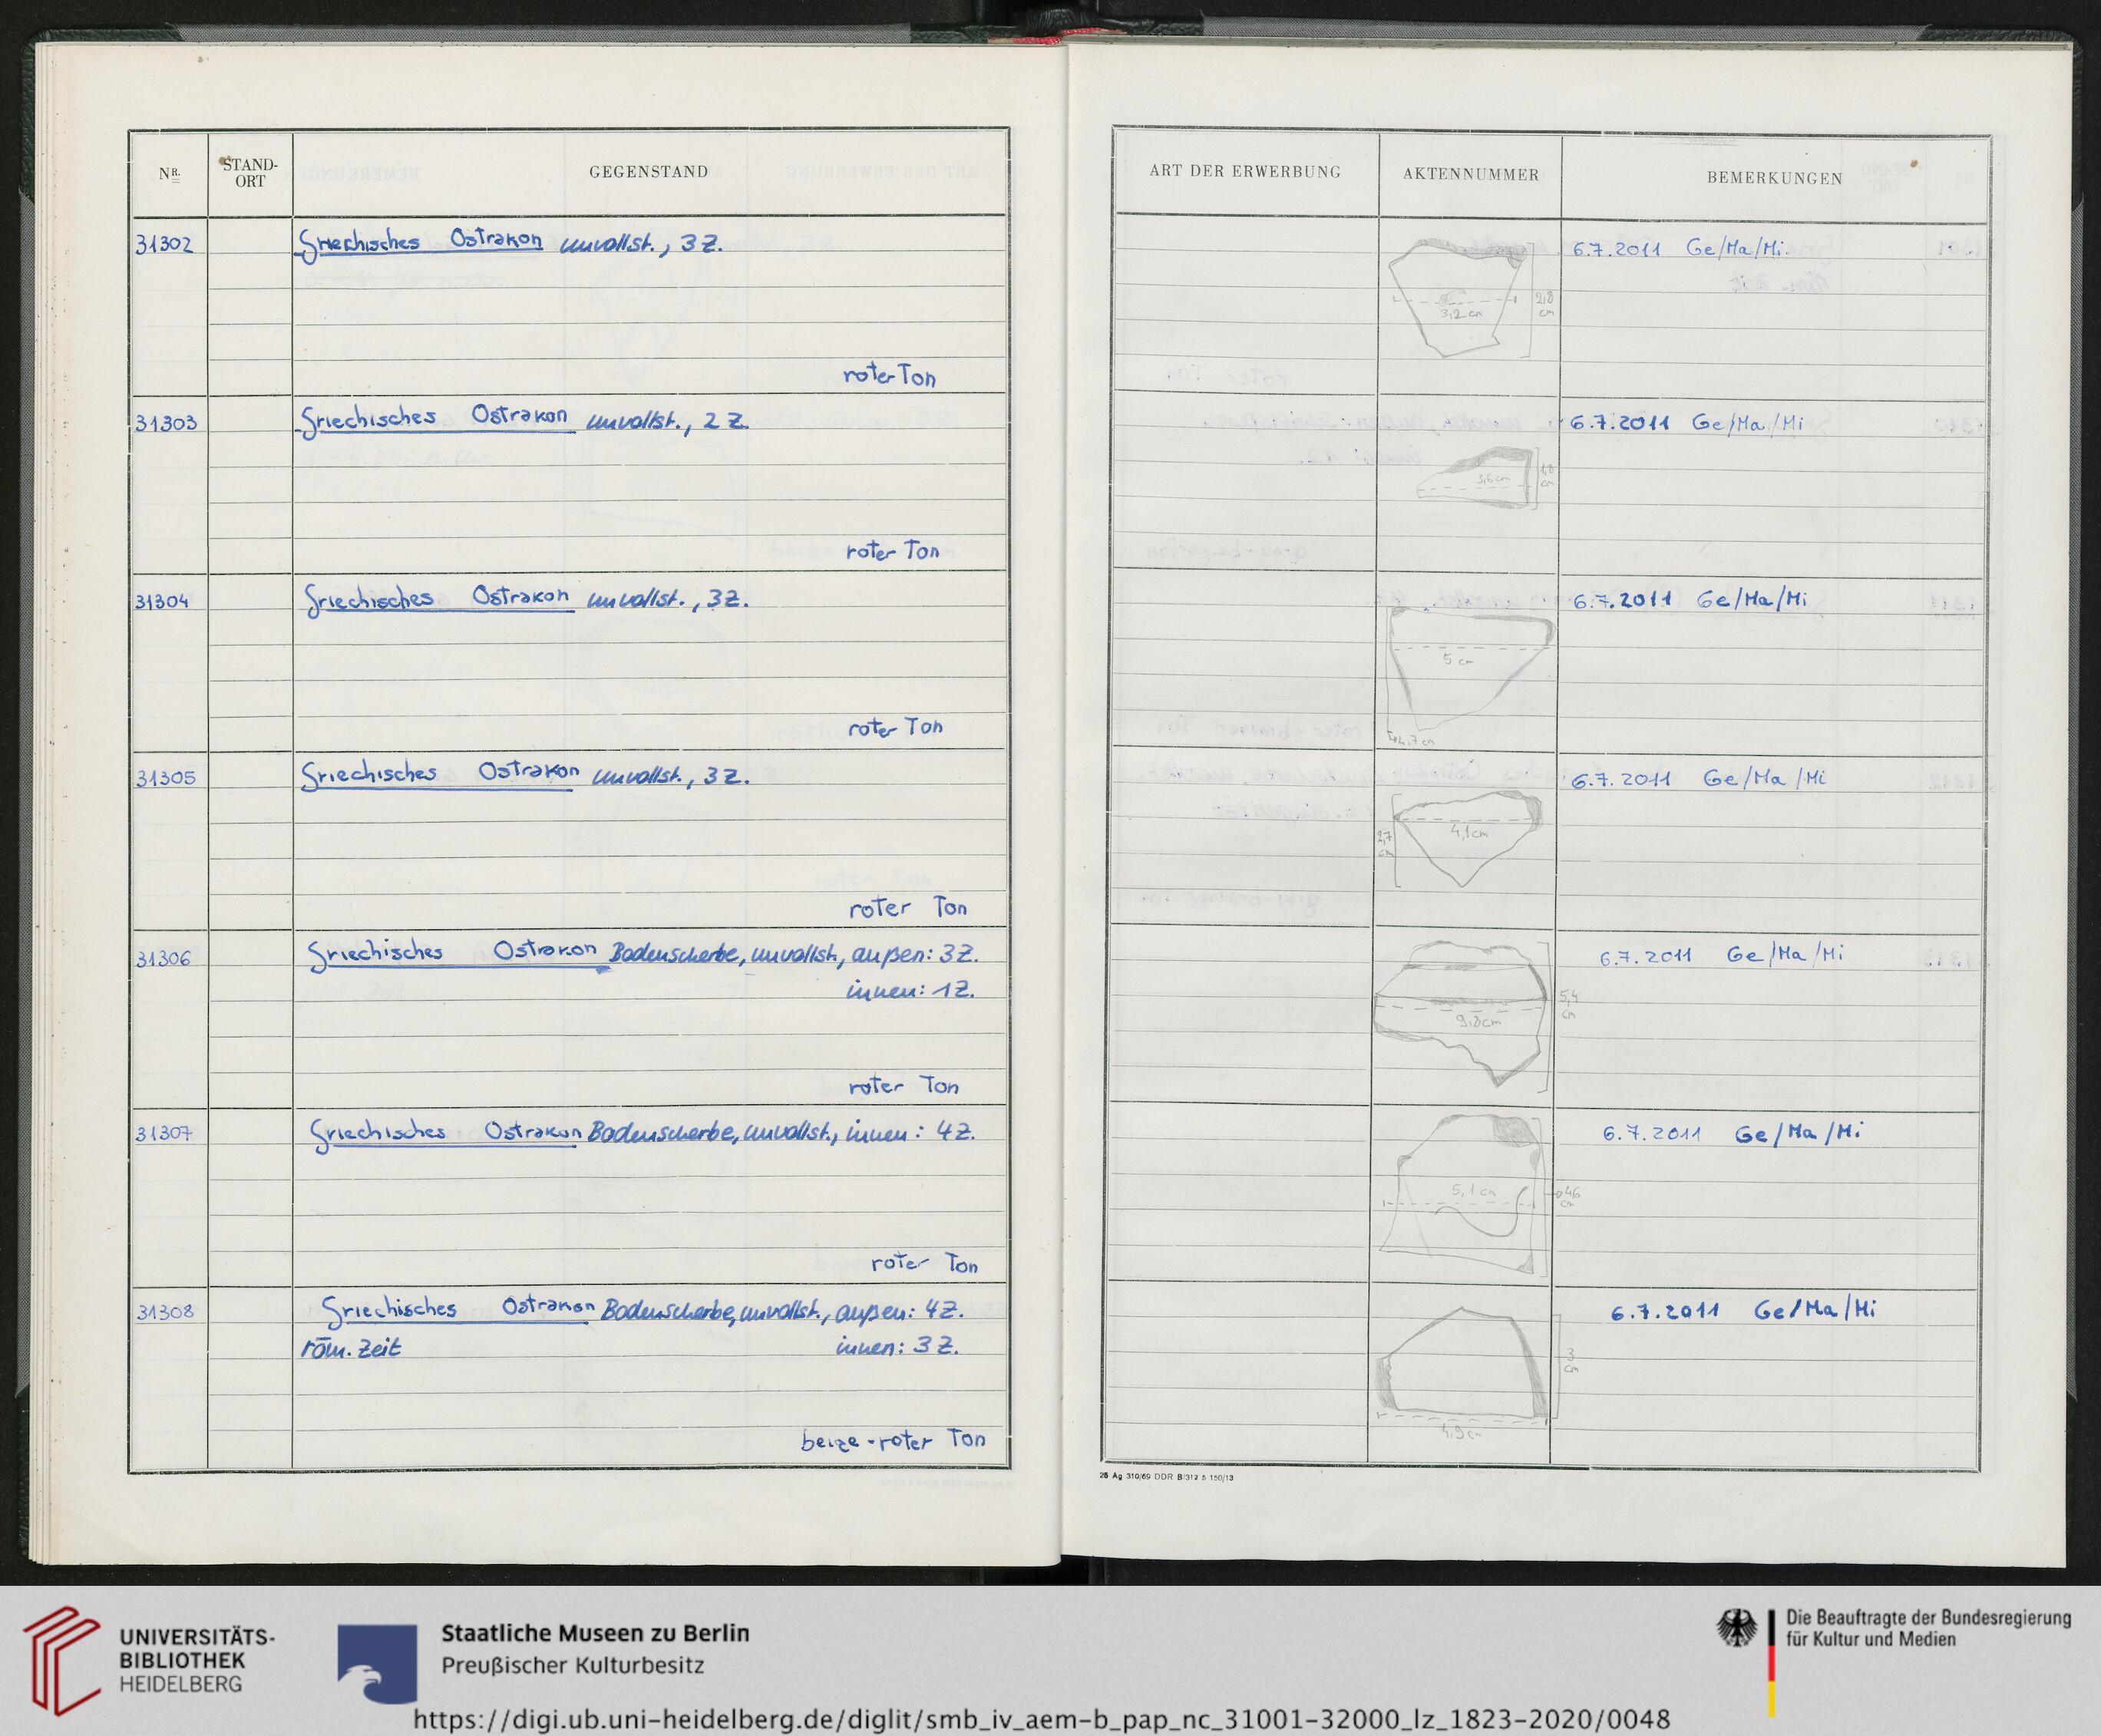 Nr. STAND-ORT GEGENSTAND ART DER ERWERBUNG AKTENNUMMER BEMERKUNGEN
31302 Griechisches Ostrakon unvollst., 3 Z. 6.7.2011 Ge/Ma/Mi
3,2 cm 2,8 cm
roter Ton
31303 Griechisches Ostrakon unvollst., 2 Z. 6.7.2011 Ge/Ma/Mi
3,6 cm 1,8 cm
roter Ton
31304 Griechisches Ostrakon unvollst., 3 Z. 6.7.2011 Ge/Ma/Mi
5 cm
roter Ton
4,7 cm
31305 Griechisches Ostrakon unvollst., 3 Z. 6.7.2011 Ge/Ma/Mi
2,7 cm 4,1 cm
roter Ton
31306 Griechisches Ostrakon Bodenscherbe, unvollst., außen: 3 Z. 6.7.2011 Ge/Ma/Mi
innen: 1 Z.
5,4 cm
roter Ton
31307 Griechisches Ostrakon Bodenscherbe, unvollst., innen: 4 Z. 6.7.2011 Ge/Ma/Mi
5,1 cm
roter Ton
31308 Griechisches Ostrakon Bodenscherbe, unvollst., außen: 4 Z. 6.7.2011 Ge/Ma/Mi
röm. Zeit innen: 3 Z.
3 cm
4,9 cm
beige-roter Ton
26 Ag 310/69 DDR
UNIVERSITÄTS-
BIBLIOTHEK
HEIDELBERG
Staatliche Museen zu Berlin
Preußischer Kulturbesitz
Die Beauftragte der Bundesregierung
für Kultur und Medien
https://digi.ub.uni-heidelberg.de/diglit/smb_iv_aem-b_pap_nc_31001-32000_lz_1823-2020/0048